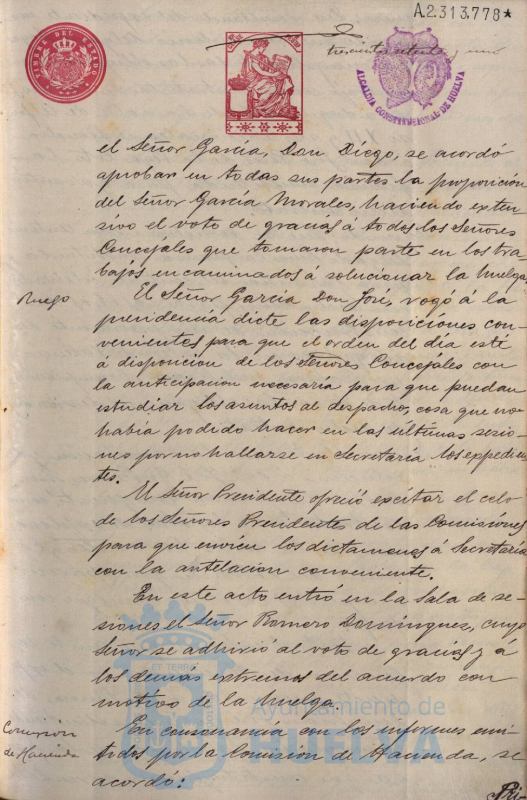 A.2.313.778*
TIMBRE DEL ESTADO
trescientos setenta y uno
ALCALDIA CONSTITUCIONAL DE HUELVA
el Señor García, Don Diego, se acordó
aprobar en todas sus partes la proposición
del Señor García Morales, haciendo exten-
sivo el voto de gracias á todos los Señores
Concejales que tomaron parte en los tra-
bajos encaminados á solucionar la huelga.
Ruego
El Señor García Don José, rogó á la
presidencia dicte las disposiciones con-
venientes para que el orden del día esté
á disposicion de los Señores Concejales con
la anticipacion necesaria para que puedan
estudiar los asuntos al despacho, cosa que no
había podido hacer en las últimas sesio-
nes por no hallarse en Secretaría los expedien-
tes.
El Señor Presidente ofreció excitar el celo
de los Señores Presidentes de las Comisiones
para que envíen los dictamenes á Secretaría
con la antelacion conveniente.
En este acto entró en la Sala de se-
siones el Señor Romero Domínguez, cuyo
Señor se adhirió al voto de gracias y á
los demás extremos del acuerdo con
motivo de la huelga.
Comision
de Hacienda
En consonancia con los informes emi-
tidos por la Comision de Hacienda, se
acordó:
Pri-
Ayuntamiento de
HUELVA